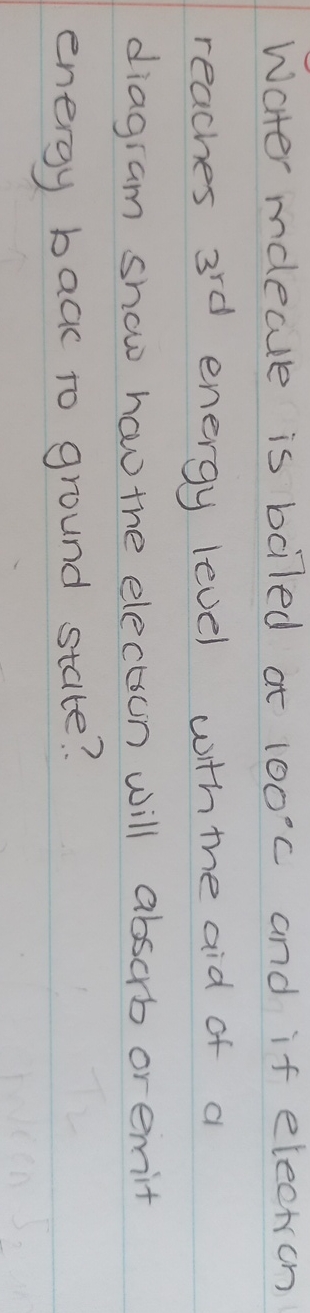 Water molecule is boiled at 100°C and if electron
reaches 3rd energy level with the aid of a
diagram show how the electron will absorb or emit
energy back to ground state?